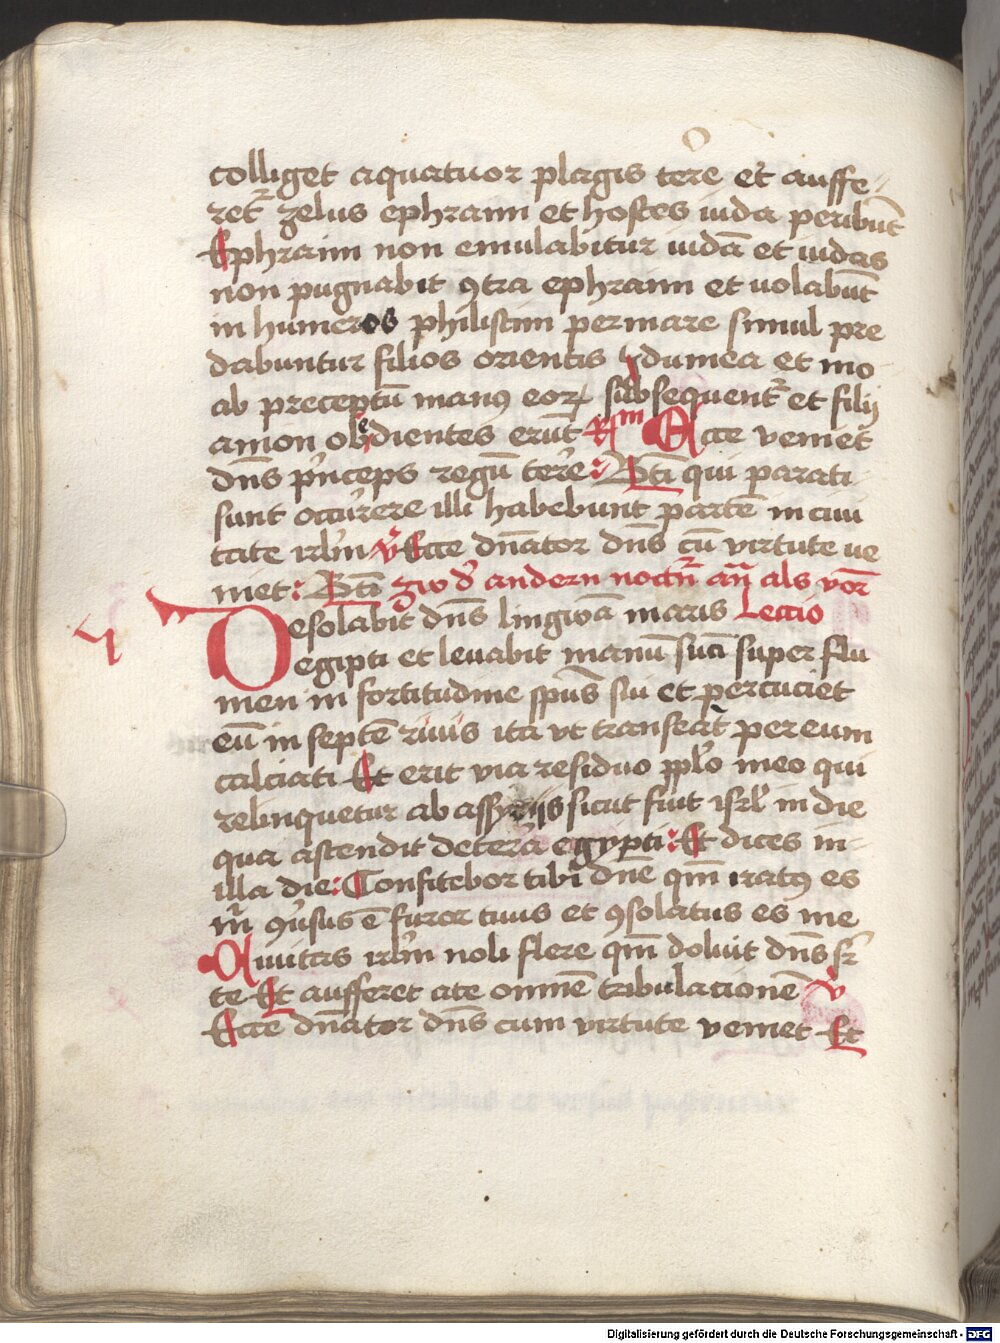 colliget aquatuor plagis tere et auffe-
ret᷑ zelus ephraim et hostes iuda peribūt
Ephraim non emulabitur iudā et iudas
non pugnabit ꝯtra ephraim et uolabūt
in humeros philistim per mare simul pre
dabuntur filios orientis ydumea et mo
ab preceptū manꝰ eoꝝ subsequent᷑ et filij
amon obedientes erūt Rm Ecce veniet
dn̄s pͥnceps regū tere: Bti̅ qui parati
sunt occurrere illi habebunt partē in ciui
tate irl̄m ℣ Ecce dn̄ator dn̄s cū virtute ue
niet: Bti̅ zwo d᷑ andern noctn̄ an̄ als vor
Desolabit dn̄s lingwā maris Leccio
egipti et levabit manū suā super flu
men in fortitudine spūs sui et percuciet
eū in septē riuis ita vt transeāt per eum
calciati Et erit via residuo ppl̄o meo qui
relinquetur ab assyrijs sicut fuit isrl̄ in die
qua ascendit de terra egypti: Et dices in-
illa die: Confitebor tibi dn̄e qm̄ iratꝰ es
m̄ ꝯuersus ē furor tuus et ꝯsolatus es me
Ciuitas irl̄m noli flere qm̄ doluit dn̄s sr̄
te Et aufferet ate omnē tribulacionē ℣
Ecce dn̄ator dn̄s cum virtute veniet Et
Digitalisierung gefördert durch die Deutsche Forschungsgemeinschaft - DFG